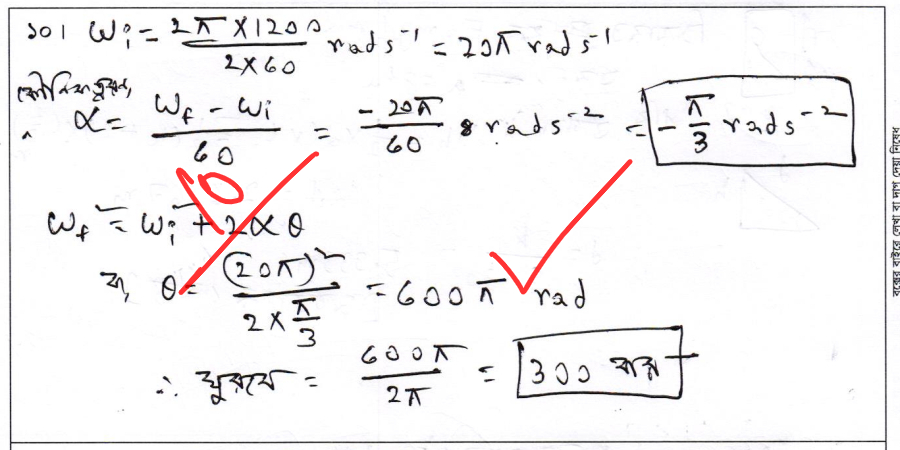 ১০। ωᵢ = 2π × 1200 / 2 × 60 rad s⁻¹ = 20π rad s⁻¹
কৌণিক ত্বরণ,
α = ω_f − ωᵢ / 60 = −20π / 60 rad s⁻² = −π/3 rad s⁻²
10
ω_f² = ωᵢ² + 2αθ
বা, θ = (20π)² / 2 × π/3 = 600π rad
∴ ঘুরবে = 600π / 2π = 300 বার
বক্সের বাইরে লেখা বা দাগ দেয়া নিষেধ